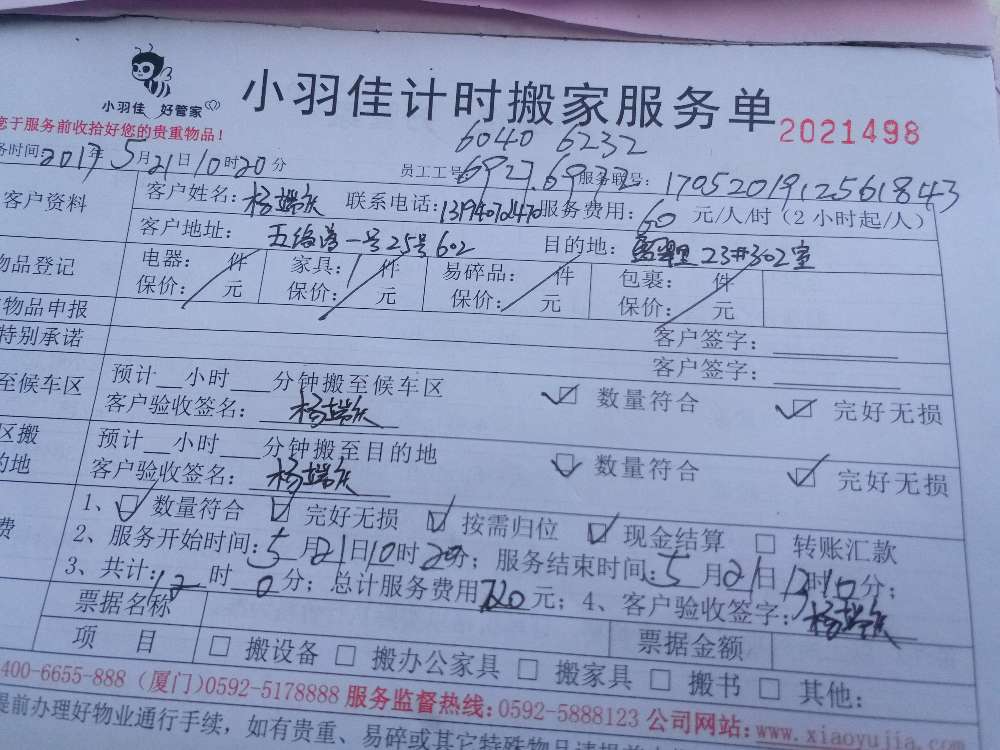 小羽佳 好管家
小羽佳计时搬家服务单 2021498
您于服务前收拾好您的贵重物品！
6040 6232
务时间:2017年5月21日10时20分 员工工号:6927.6932 服务联号:1705201912561843
客户资料 客户姓名:杨瑞庆 联系电话: 服务费用:60元/人/时(2小时起/人)
客户地址: 一号25号602 目的地: 23#302室
物品登记 电器: 件 家具: 件 易碎品: 件 包裹: 件
保价: 元 保价: 元 保价: 元 保价: 元
物品申报 客户签字:
特别承诺 客户签字:
至候车区 预计__小时___分钟搬至候车区 ☑ 数量符合 ☑ 完好无损
客户验收签名: 杨瑞庆
区搬 预计__小时___分钟搬至目的地 ☑ 数量符合 ☑ 完好无损
的地 客户验收签名: 杨瑞庆
费 1、☑ 数量符合 ☑ 完好无损 ☑ 按需归位 ☑ 现金结算 □ 转账汇款
2、服务开始时间:5月21日10时20分; 服务结束时间:5月21日 时 分;
3、共计:12时0分; 总计服务费用720元; 4、客户验收签字: 杨瑞庆
票据名称 票据金额
项 目 □ 搬设备 □ 搬办公家具 □ 搬家具 □ 搬书 □ 其他:
400-6655-888 (厦门)0592-5178888 服务监督热线:0592-5888123 公司网站:www.xiaoyujia.com
提前办理好物业通行手续,如有贵重、易碎或其它特殊物品请提前